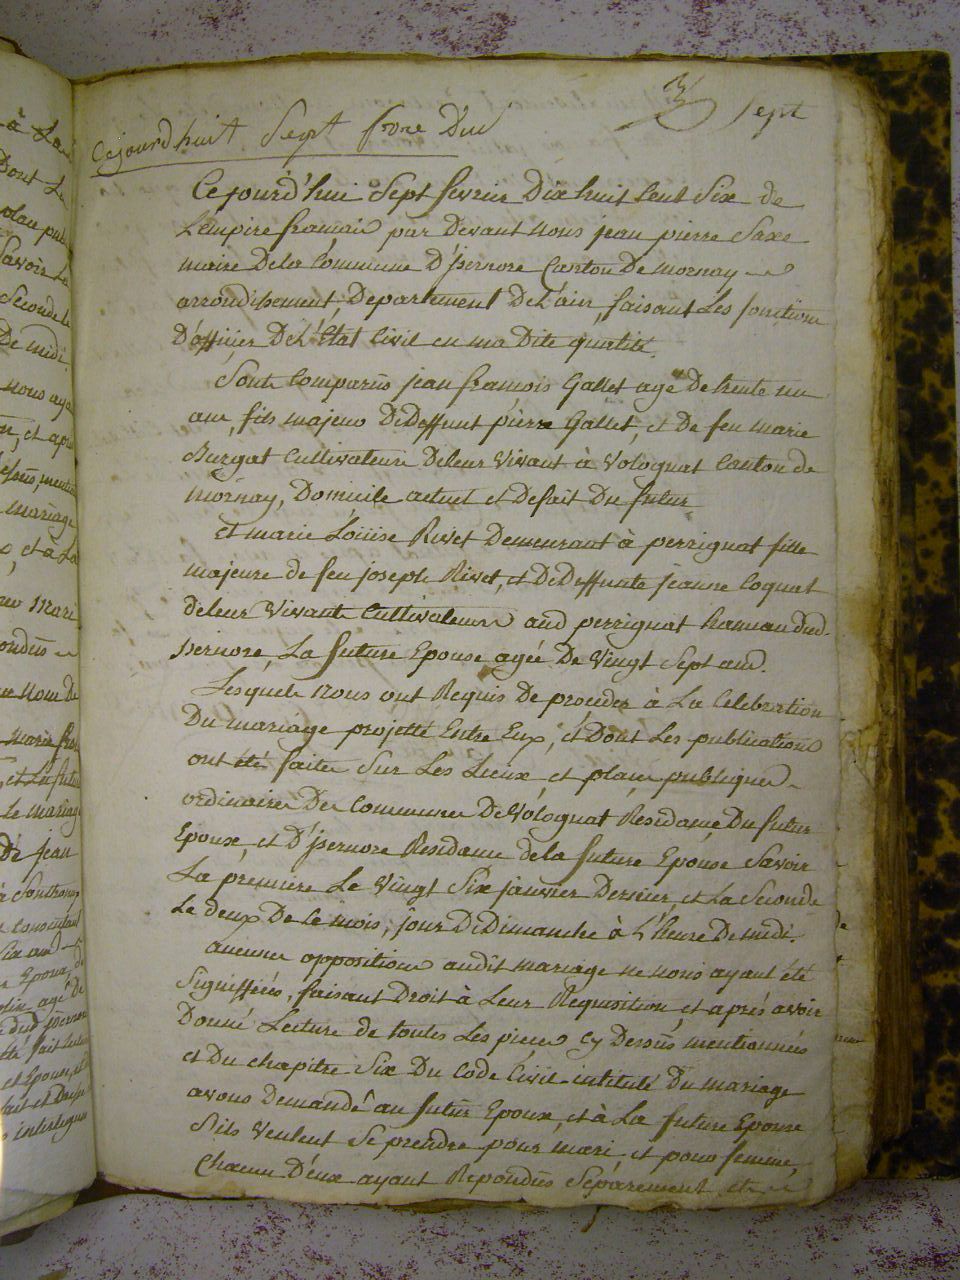 3 Sept
Cejourdhuit Sept fvre Dix
Cejourd'hui Sept fevrier Dix huit Cent Six de
L'empire framais par Devant nous jean pierre Saxe
maire Dela Commune D'jsernore Canton De mornay
arrondissement, Departement De L'ain, faisant Les fonctions
D'officier De L'Etat Civil en ma Dite qualité.
Sont Comparûs jean framois Gallet age De trente un
ans, fils majeur De Deffunt pierre Gallet, et De feu marie
Burgat Cultivateurs Deleur Vivant à Volognat Canton de
mornay, Domicile actuel et De fait Du futur
Et marie Loüise Rivet Demeurant à perrignat fille
majeure de feu joseph Rivet, et De Deffunte jeanne Coquet
deleur Vivant Cultivateurs aud perrignat hameau dud.
jsernore, La future Epouse agée De Vingt Sept ans.
Lesquels nous ont Requis De proceder à La Celebration
Du mariage projetté Entre Eux, et Dont Les publications
ont été faites Sur Les Lieux et places publiques
ordinaires Des Communes De Volognat Residame Du futur
Epoux, et D'jsernore Residame dela future Epouse Savoir
La premiere Le Vingt Six janvier Dernier, et La Seconde
Le deux De Ce mois, jour De Dimanche à L'heure De midi.
aucunes oppositions audit mariage ne nous ayant été
Signiffiées, faisant Droit à Leur Requisition, et aprés avoir
Donné Lecture de toutes Les pieces Cy Dessus mentionnées
et Du chapitre Six Du Code Civil intitulé Du mariage
avons Demandé au futur Epoux, et à La future Epouse
S'ils Veulent Se prendre pour mari, et pour femme,
Chacun D'eux ayant Repondus Séparement et